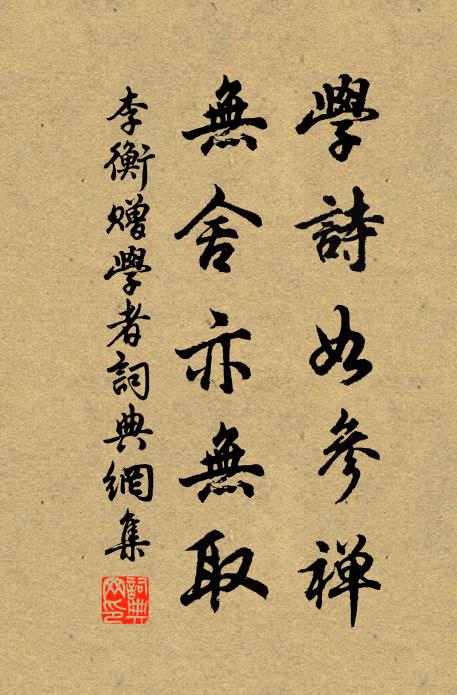 學詩如參禪
無舍亦無取
李衡贈學者詞典網集
詞典網印